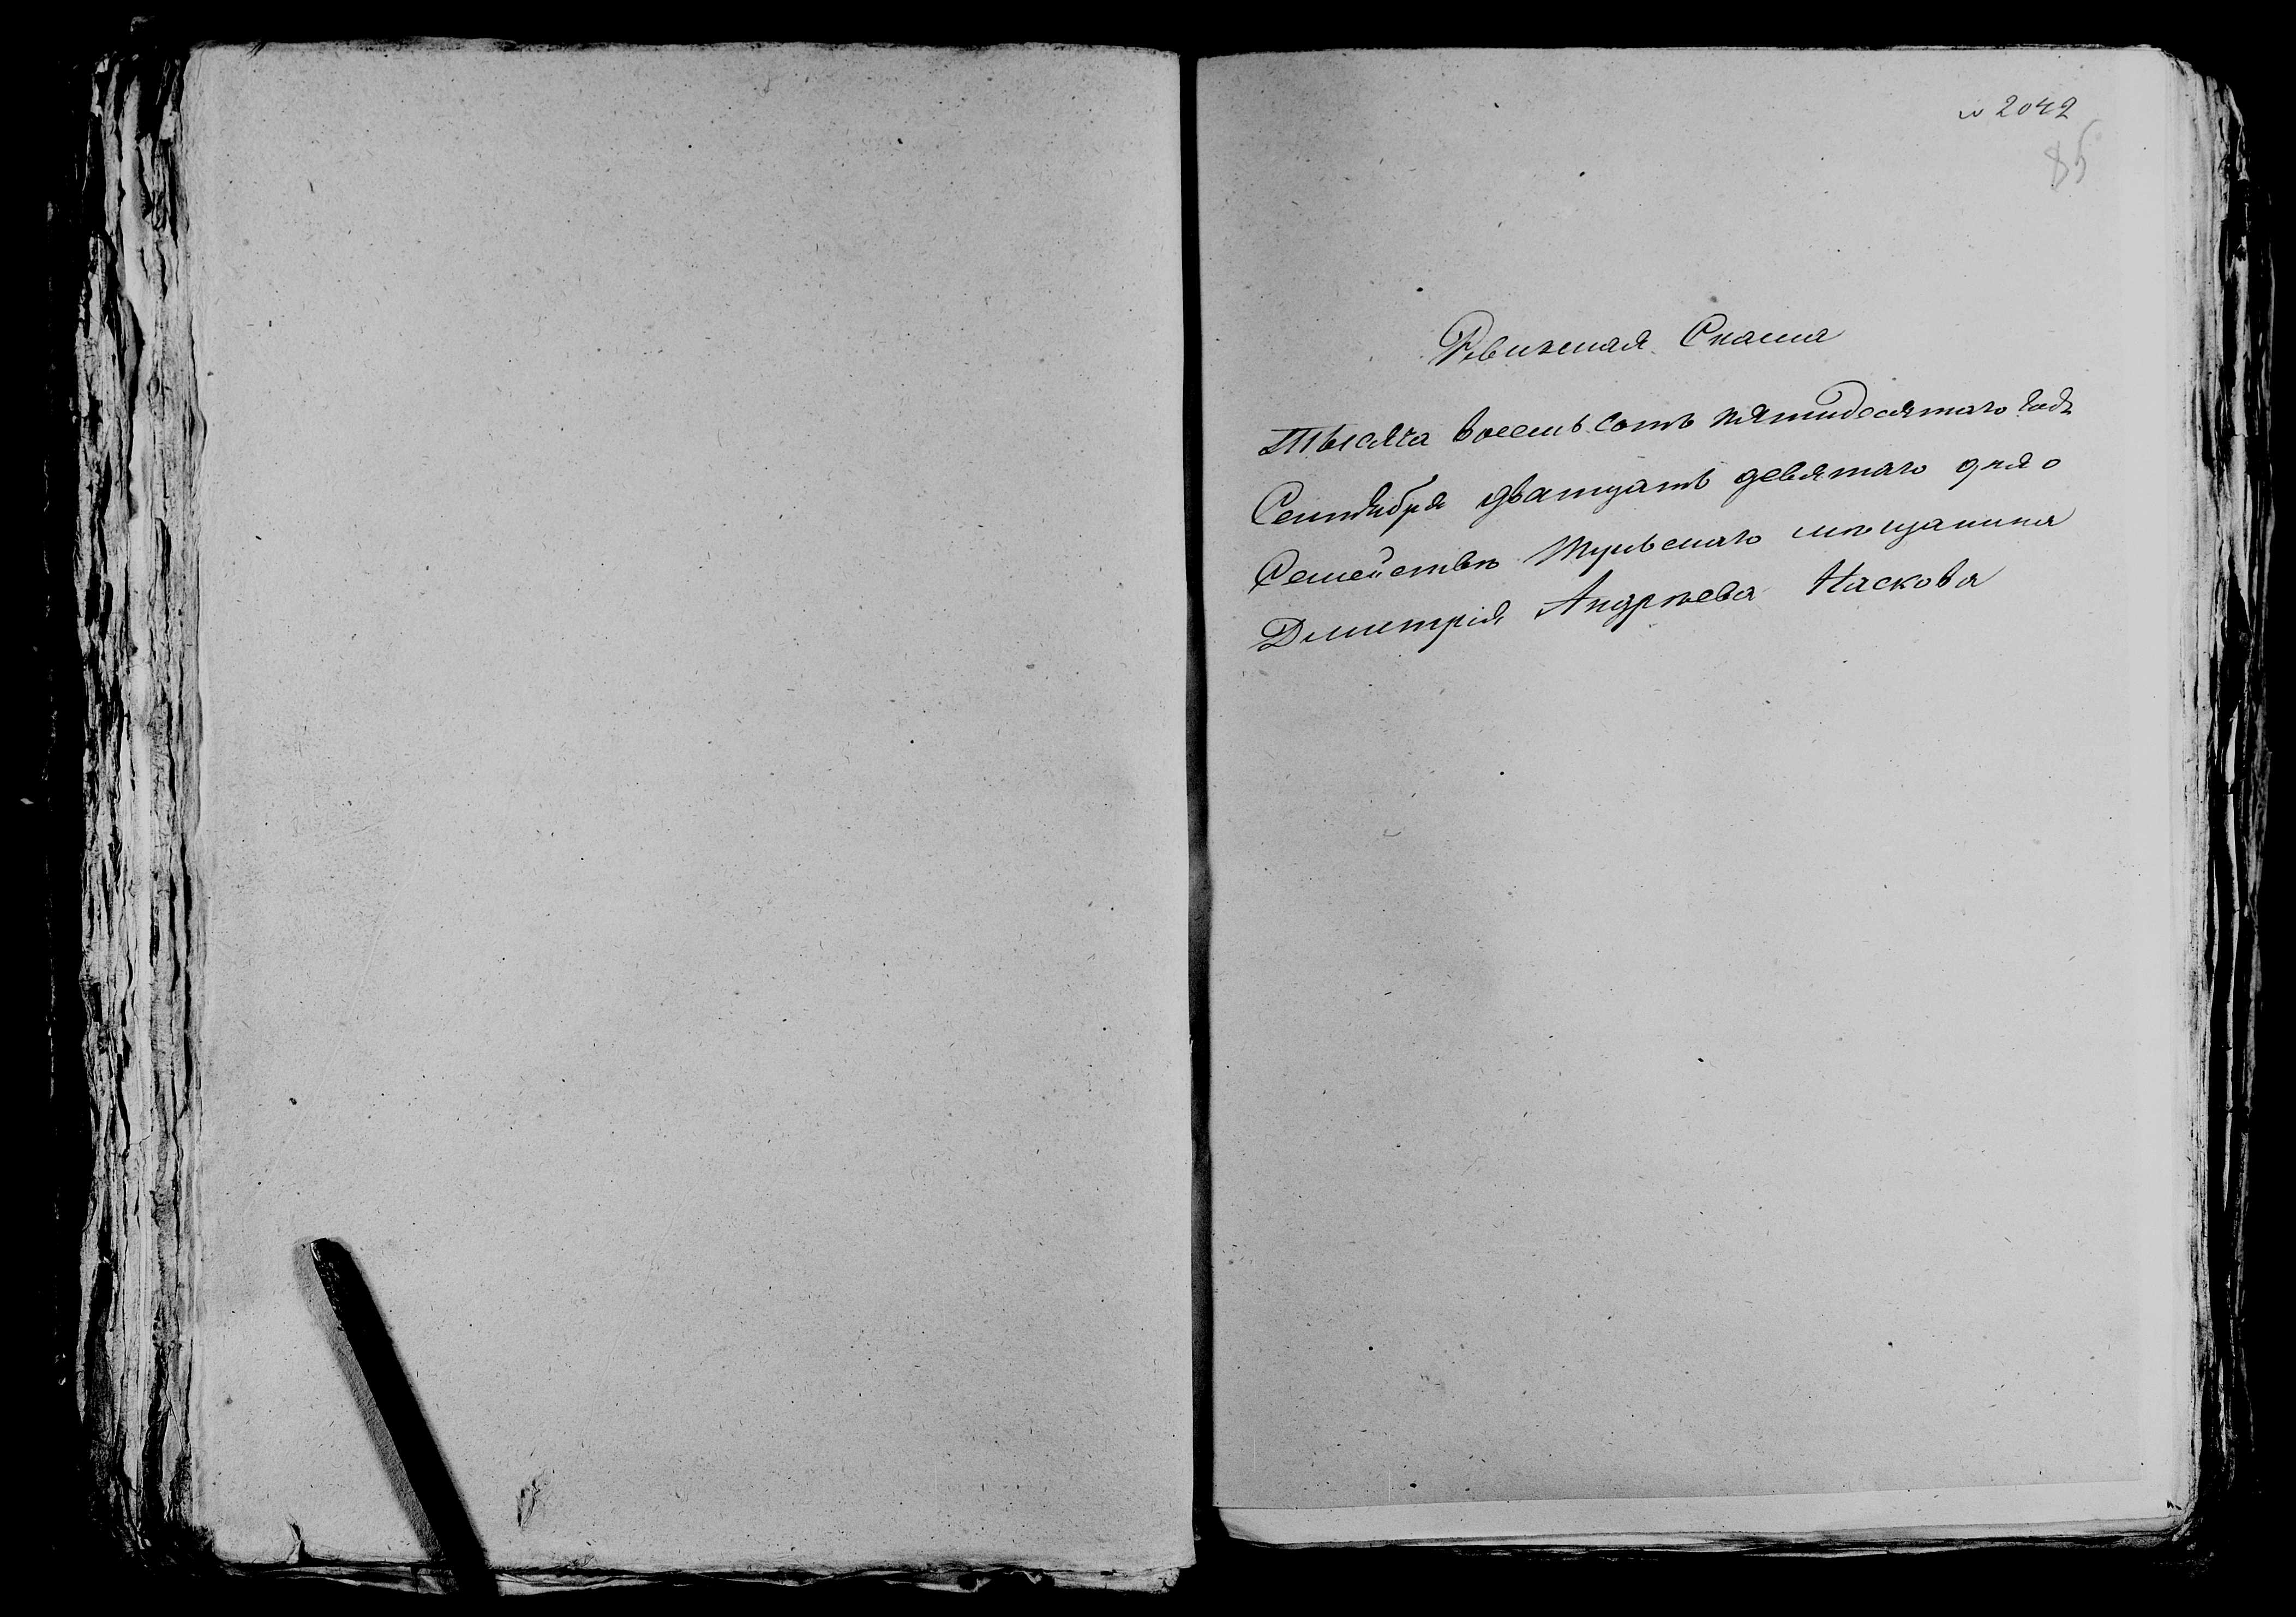 № 2042
85
Ревизская Сказка
Тысяча восемь сотъ пятидесятаго года
Сентября дватцать девятаго дня о
Семействѣ Тульскаго мѣщанина
Дмитрія Андрѣева Паскова